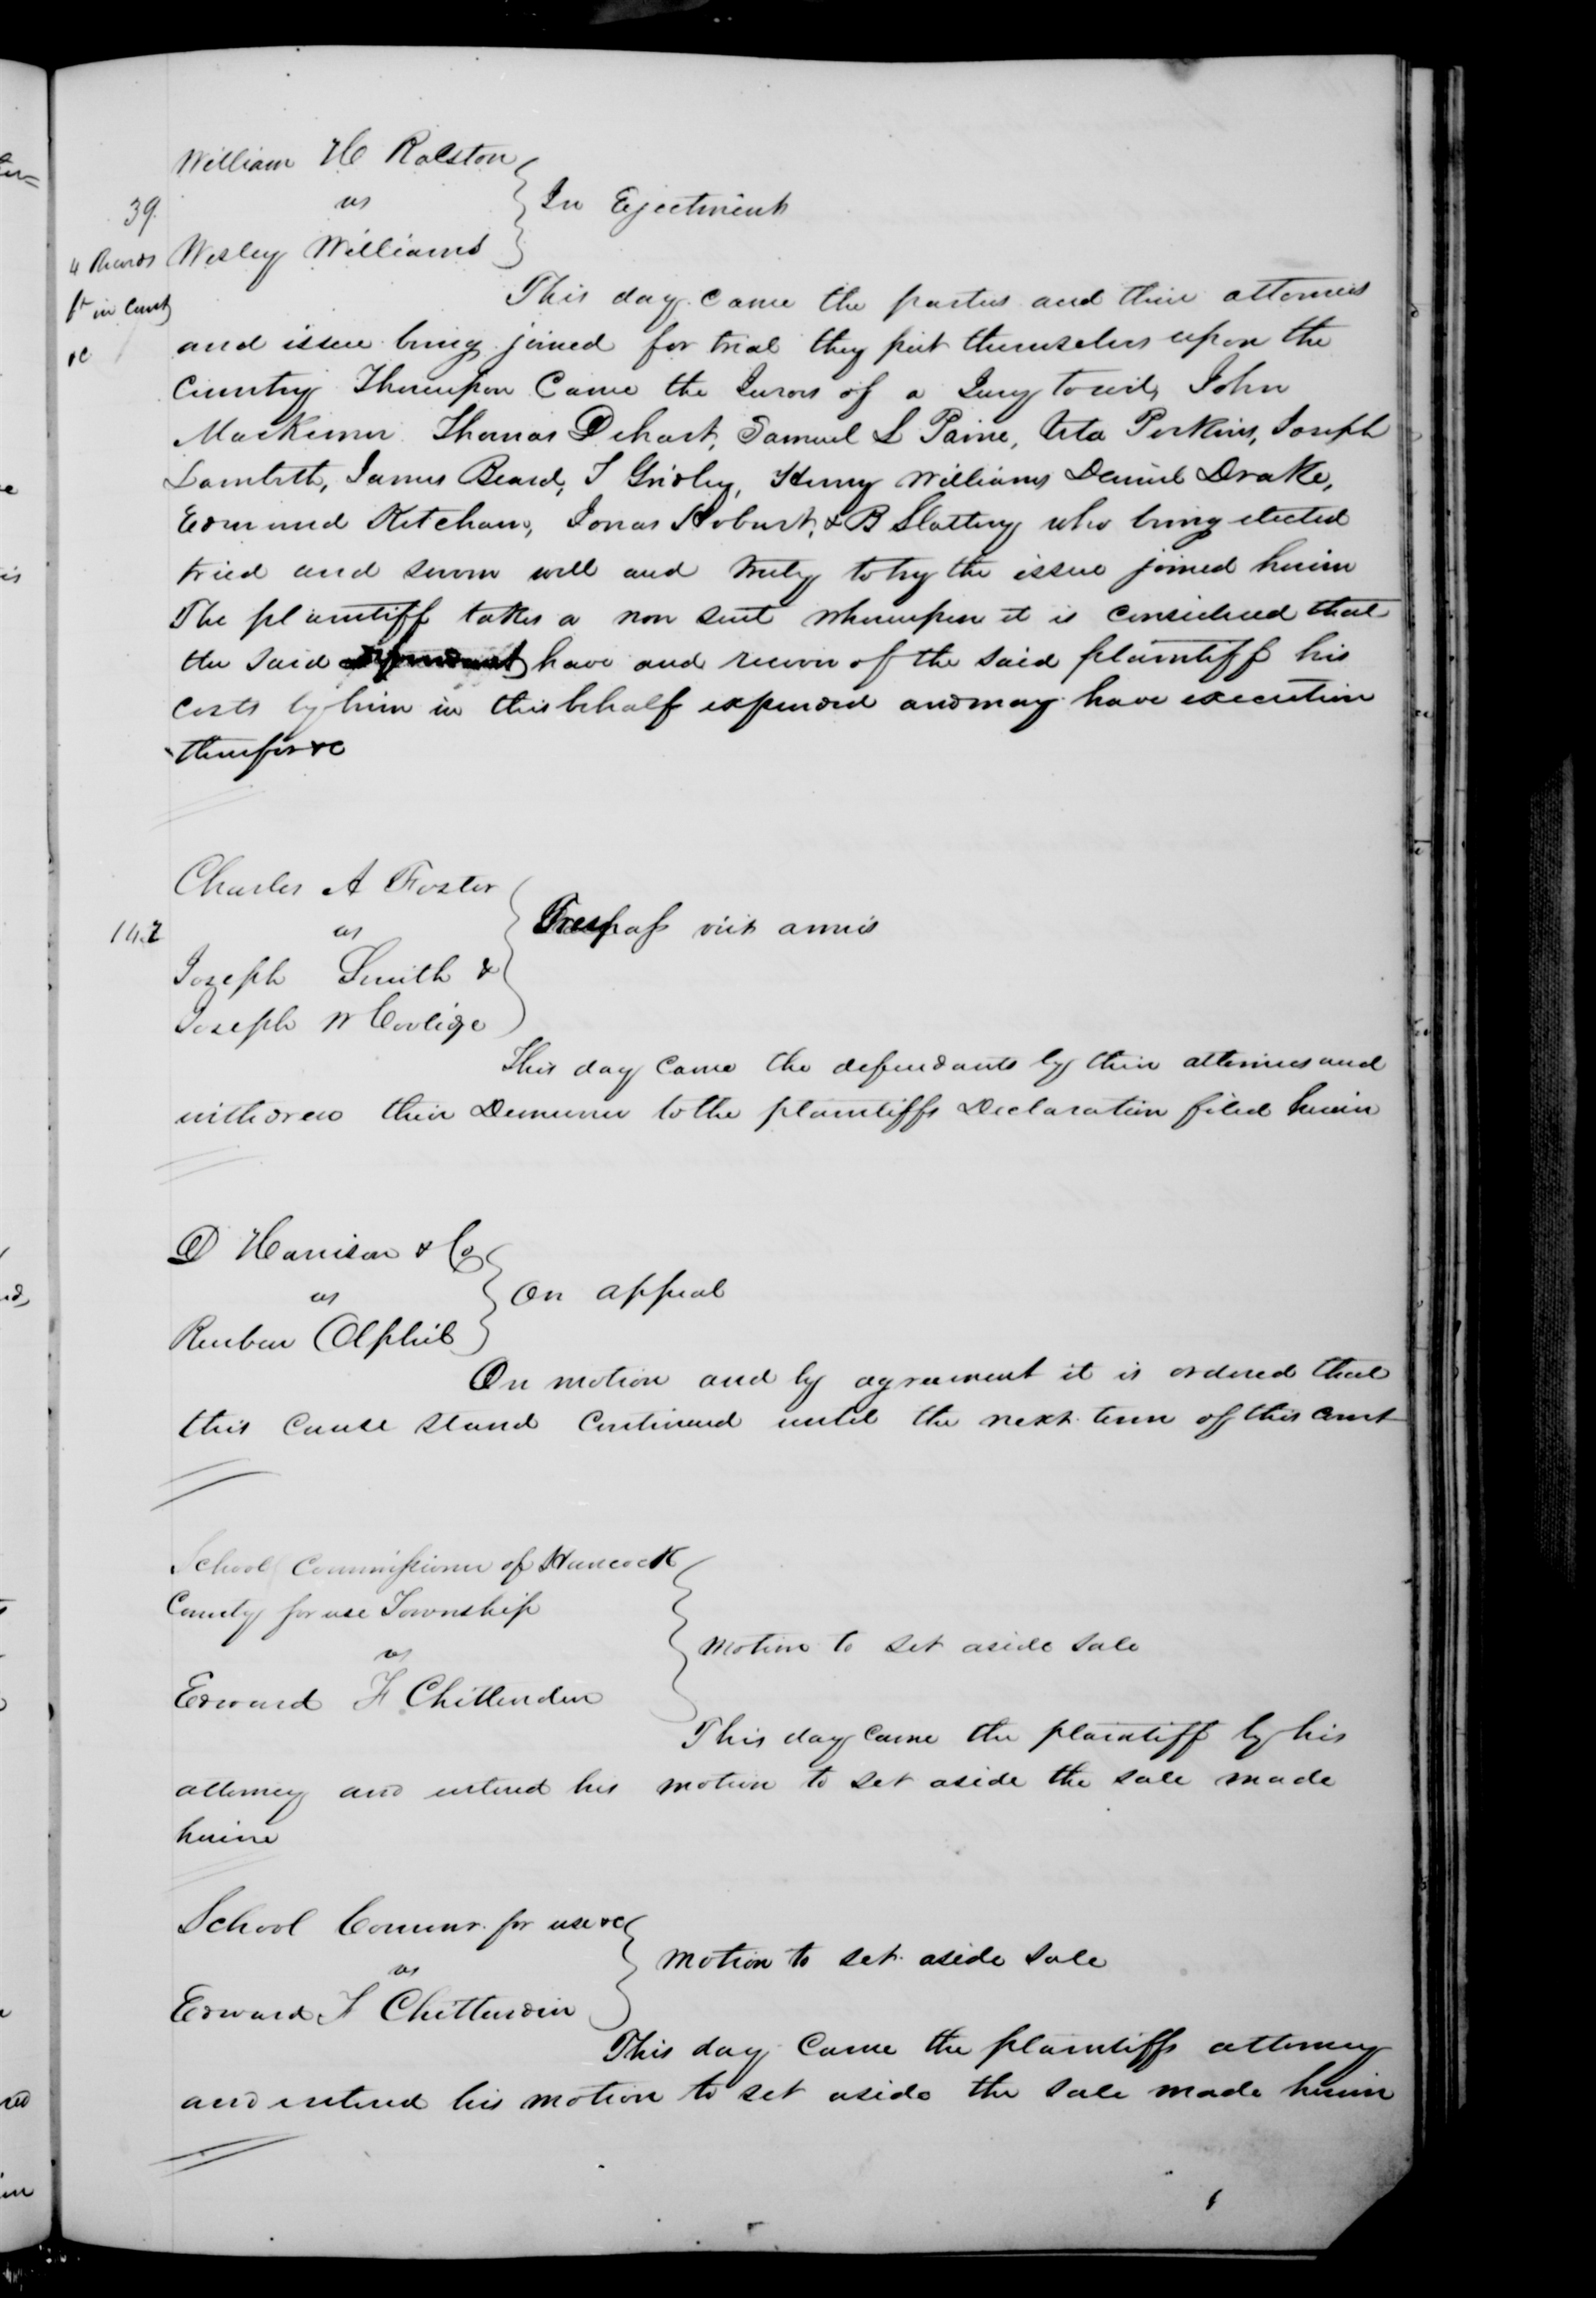 William H Ralston
39. vs In Ejectment
4 Records Wesley Williams
This day came the parties and their attornies
and issue being joined for trial they put themselves upon the
&c
Country Thereupon Came the Jurors of a Jury towit, John
Thomas Dehart, Samuel L Paine, Asa Perkins, Joseph
Lambert, James Beard, S Gridley, Henry Williams Daniel Drake,
Edmund Ketcham, Jonas Hobart, & B Slattery who being elected
tried and sworn well and truly to try the issue joined herein
The plaintiff takes a non suit whereupon it is considered that
the said defendant have and recover of the said plaintiff his
costs by him in this behalf expended and may have execution
therefor &c
Charles A Foster
142 vs Trespass vict armis
Joseph Smith &
Joseph W Coolidge
This day came the defendants by their attornies and
withdrew their Demurrer to the plaintiffs Declaration filed herein
D Harrison & Co
vs On appeal
Reuben
On motion and by agreement it is ordered that
this cause stand continued until the next term of this court
School Commissioner of Hancock
County for use Township
vs motion to set aside sale
Edward F Chittenden
This day came the plaintiff by his
attorney and entered his motion to set aside the sale made
herein
School Commr. for use &c
vs motion to set aside sale
Edward F Chittenden
This day came the plaintiffs attorney
and entered his motion to set aside the sale made herein